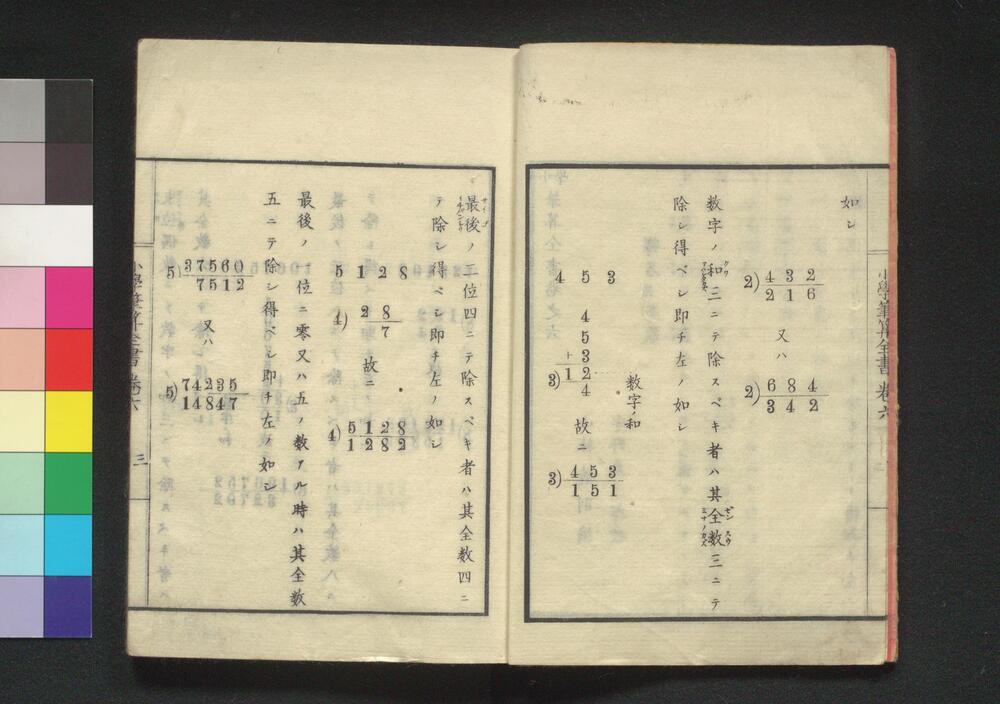 如シ
2)432
216
又ハ
2)684
342
数字ノ和三ニテ除スベキ者ハ其全数三ニテ
除シ得ベシ即チ左ノ如シ
数字ノ和
453
4
5
3
3)12
4
故ニ
3)453
151
小學筆算全書 卷六
最後ノ二位四ニテ除スベキ者ハ其全数四ニ
テ除シ得ベシ即チ左ノ如シ
5128
4)28
7
故ニ
4)5128
1282
最後ノ一位ニ零又ハ五ノ数アル時ハ其全数
五ニテ除シ得ベシ即チ左ノ如シ
5)37560
7512
又ハ
5)74235
14847
小學筆算全書 卷六
三